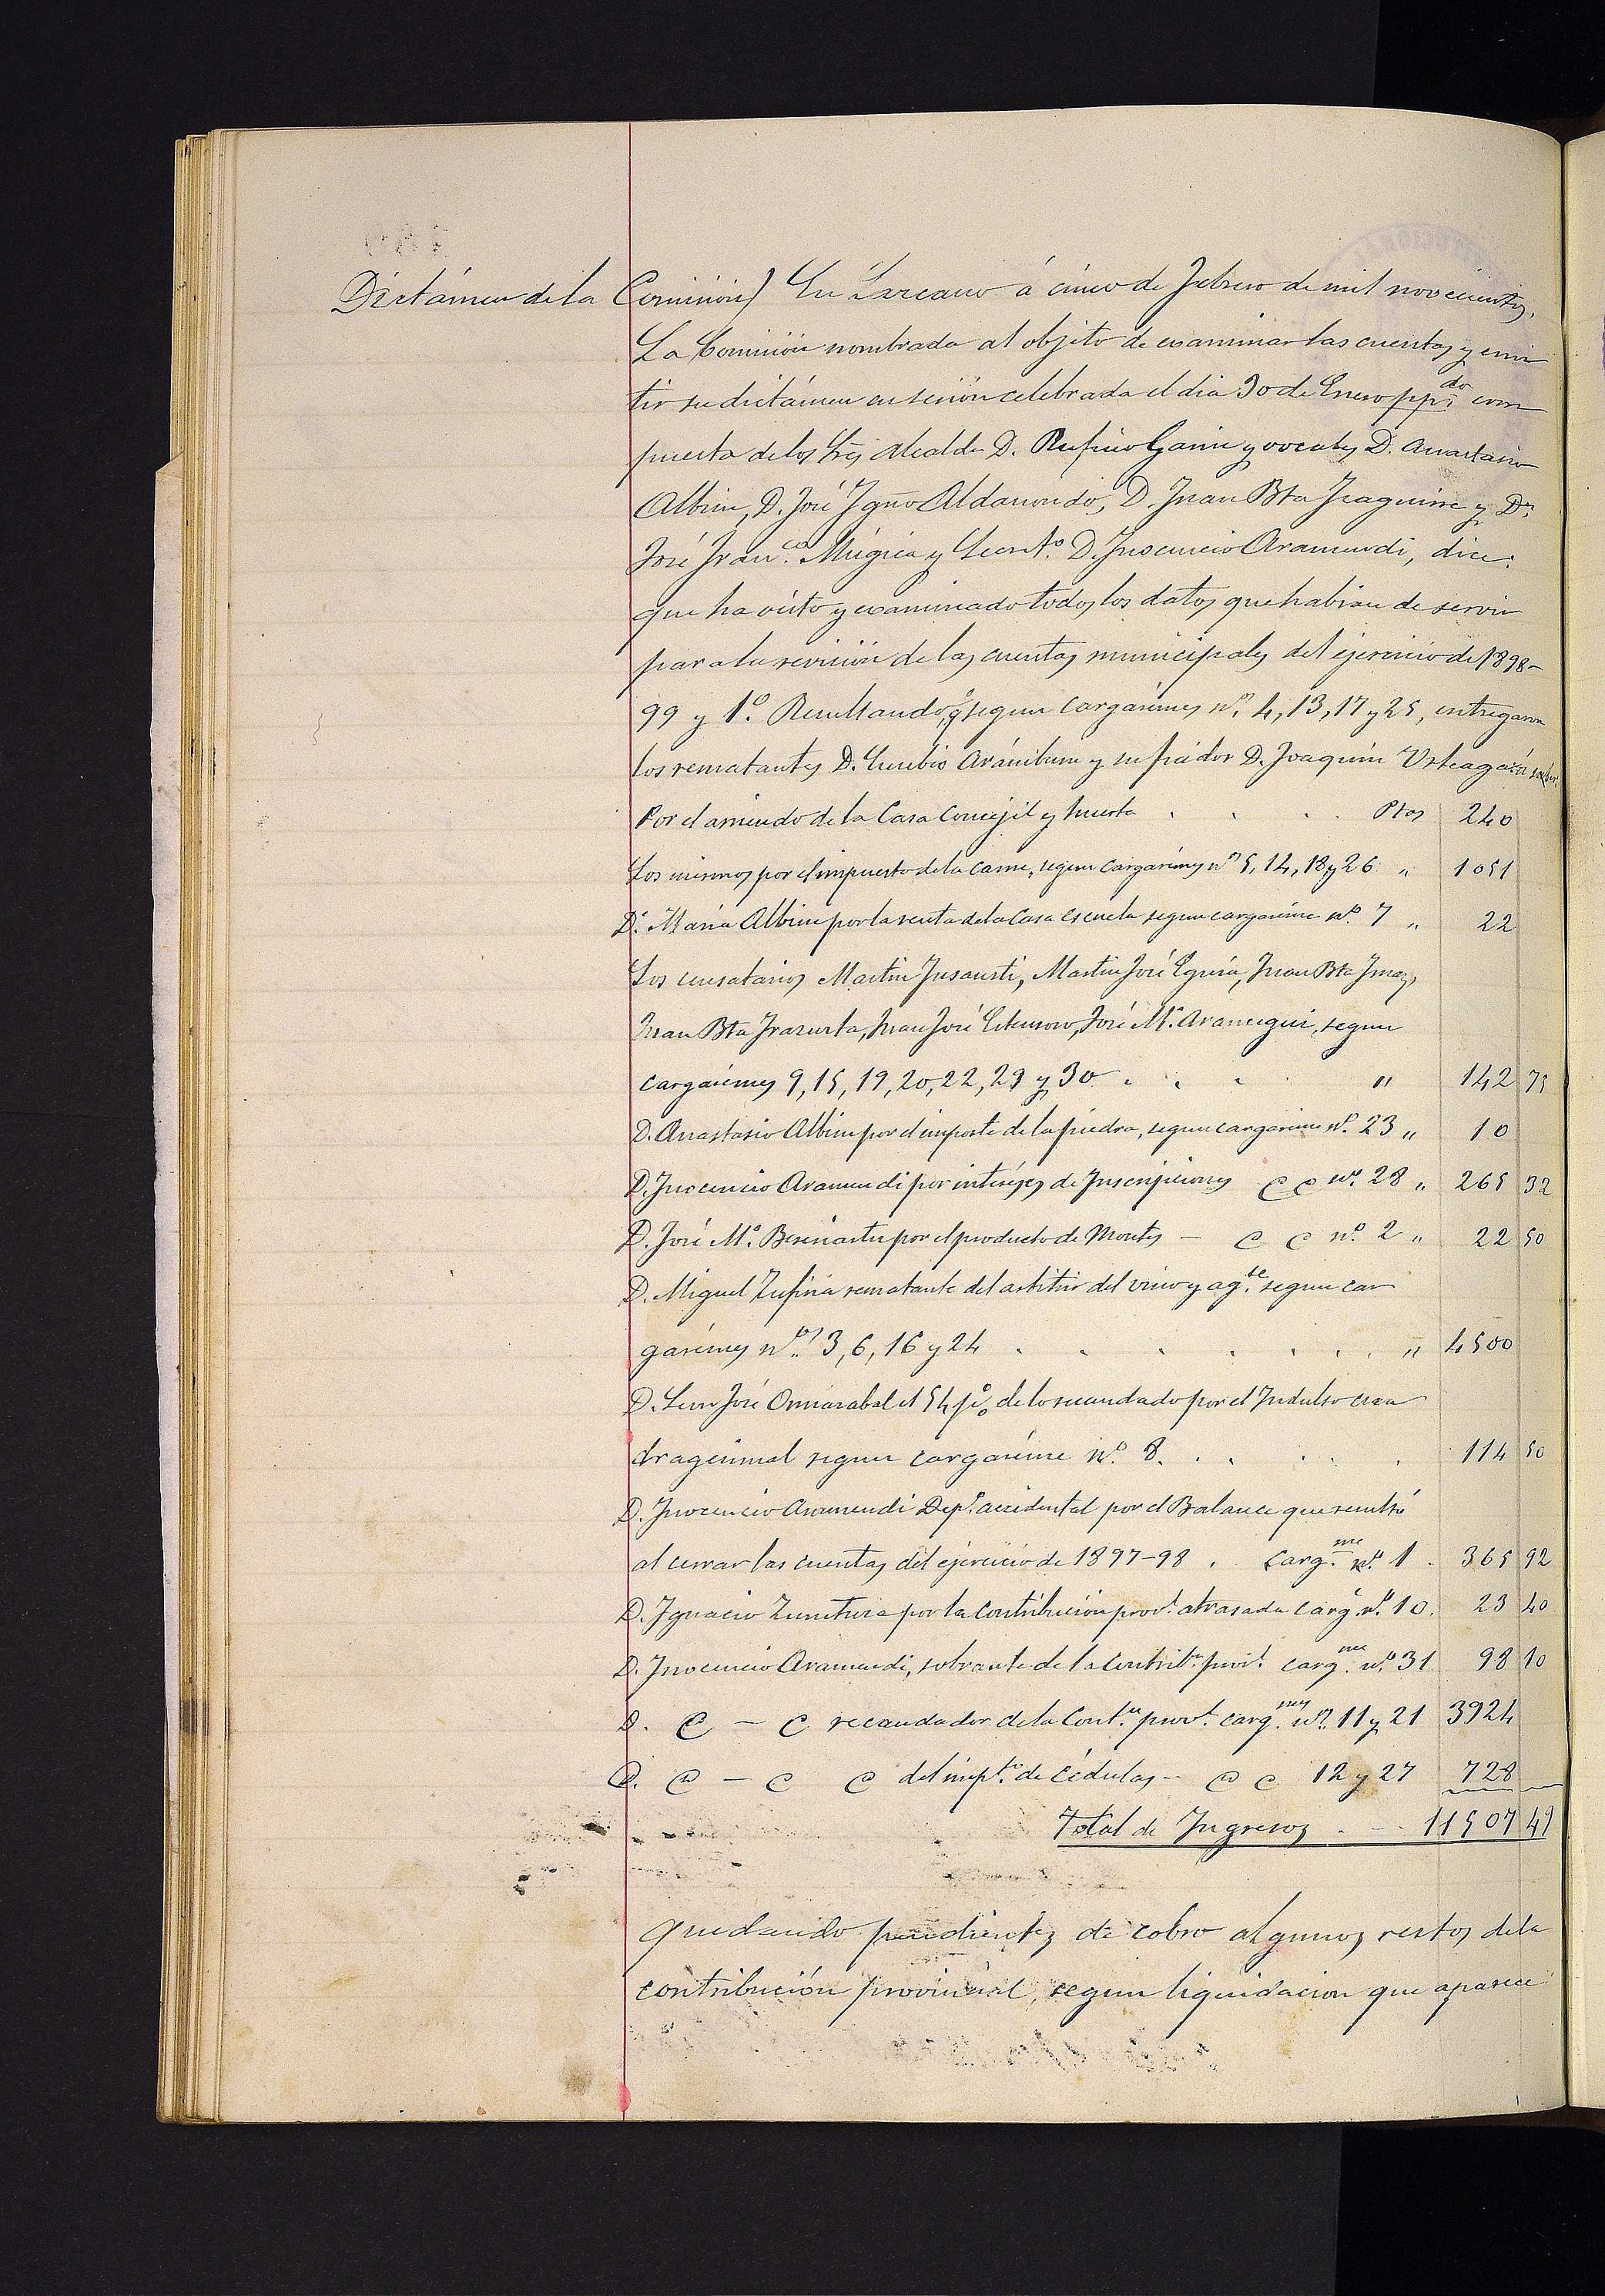 Dictámen de la Comisión) En Lazcano á cinco de Febrero de mil novecientos,
La Comisión nombrada al objeto de examinar las cuentas y emi
tir su dictámen en sesión celebrada el dia 30 de Enero ppdo. com
puesta de los Sres Alcalde D. Rufino Garin y vocales D. Anastasio
Albisu, D. José Ygno Aldanondo, D. Juan Bta Iraguirre y Dn.
José Franco. Múgica y Secreto. D. Inocencio Aramendi, dice:
que ha visto y examinado todos los datos que habian de servir
para la revisión de las cuentas municipales del ejercicio de 1898-
99 y 1º. Resultando, q segun cargarémes nos. 4, 13, 17 y 25, entregaron
los rematantes D. Eusebio Aránburu y su fiador D. Joaquín Urteaga: á saber
Por el arriendo de la Casa Concejil y huerta . . . . Ptas 240
Los mismos por el impuesto de la carne, segun cargarémes nos 5, 14, 18 y 26 " 1051
Da. Maria Albisu por la renta de la Casa escuela segun cargaréme no. 7 " 22
Los censatarios Martin Insausti, Martin José Eguia, Juan Bta Imaz,
Juan Bta Irazusta, Juan José , José Ma. Aramegui, segun
cargarémes 9, 15, 19, 20, 22, 29 y 30 . . . " 142 75
D. Anastasio Albisu por el importe de la piedra, segun cargaréme no. 23 " 10
D. Inocencio Aramendi por interéses de Inscripciones C C no. 28 " 265 32
D. José Ma. por el producto de Montes - C C no. 2 " 22 50
D. Miguel Zufiria rematante del arbitrio del vino y agte. segun car
garémes nos. 3, 6, 16 y 24 . . . . . . . " 4500
D. José el 54 p% de lo recaudado por el Indulto cua
dragesimal segun cargaréme no. 8. . . . . . 114 50
D. Inocencio Aramendi Depo. accidental por el Balance que resultó
al cerrar las cuentas del ejercicio de 1897-98 . Cargme. no. 1 . 365 92
D. Ignacio por la Contribución provl. atrasada carge. no. 10. 23 40
D. Inocencio Aramendi, sobrante de la Contribn. provl. cargme. no. 31 98 10
D. C - C recaudador de la Contn. provl. cargmes. nos. 11 y 21 3924
D. C - C C del impto. de Cédulas - C C 12 y 27 728
Total de Ingresos . - - . 11507 49
quedando pendientes de cobro algunos restos de la
contribución provincial, segun liquidacion que aparece